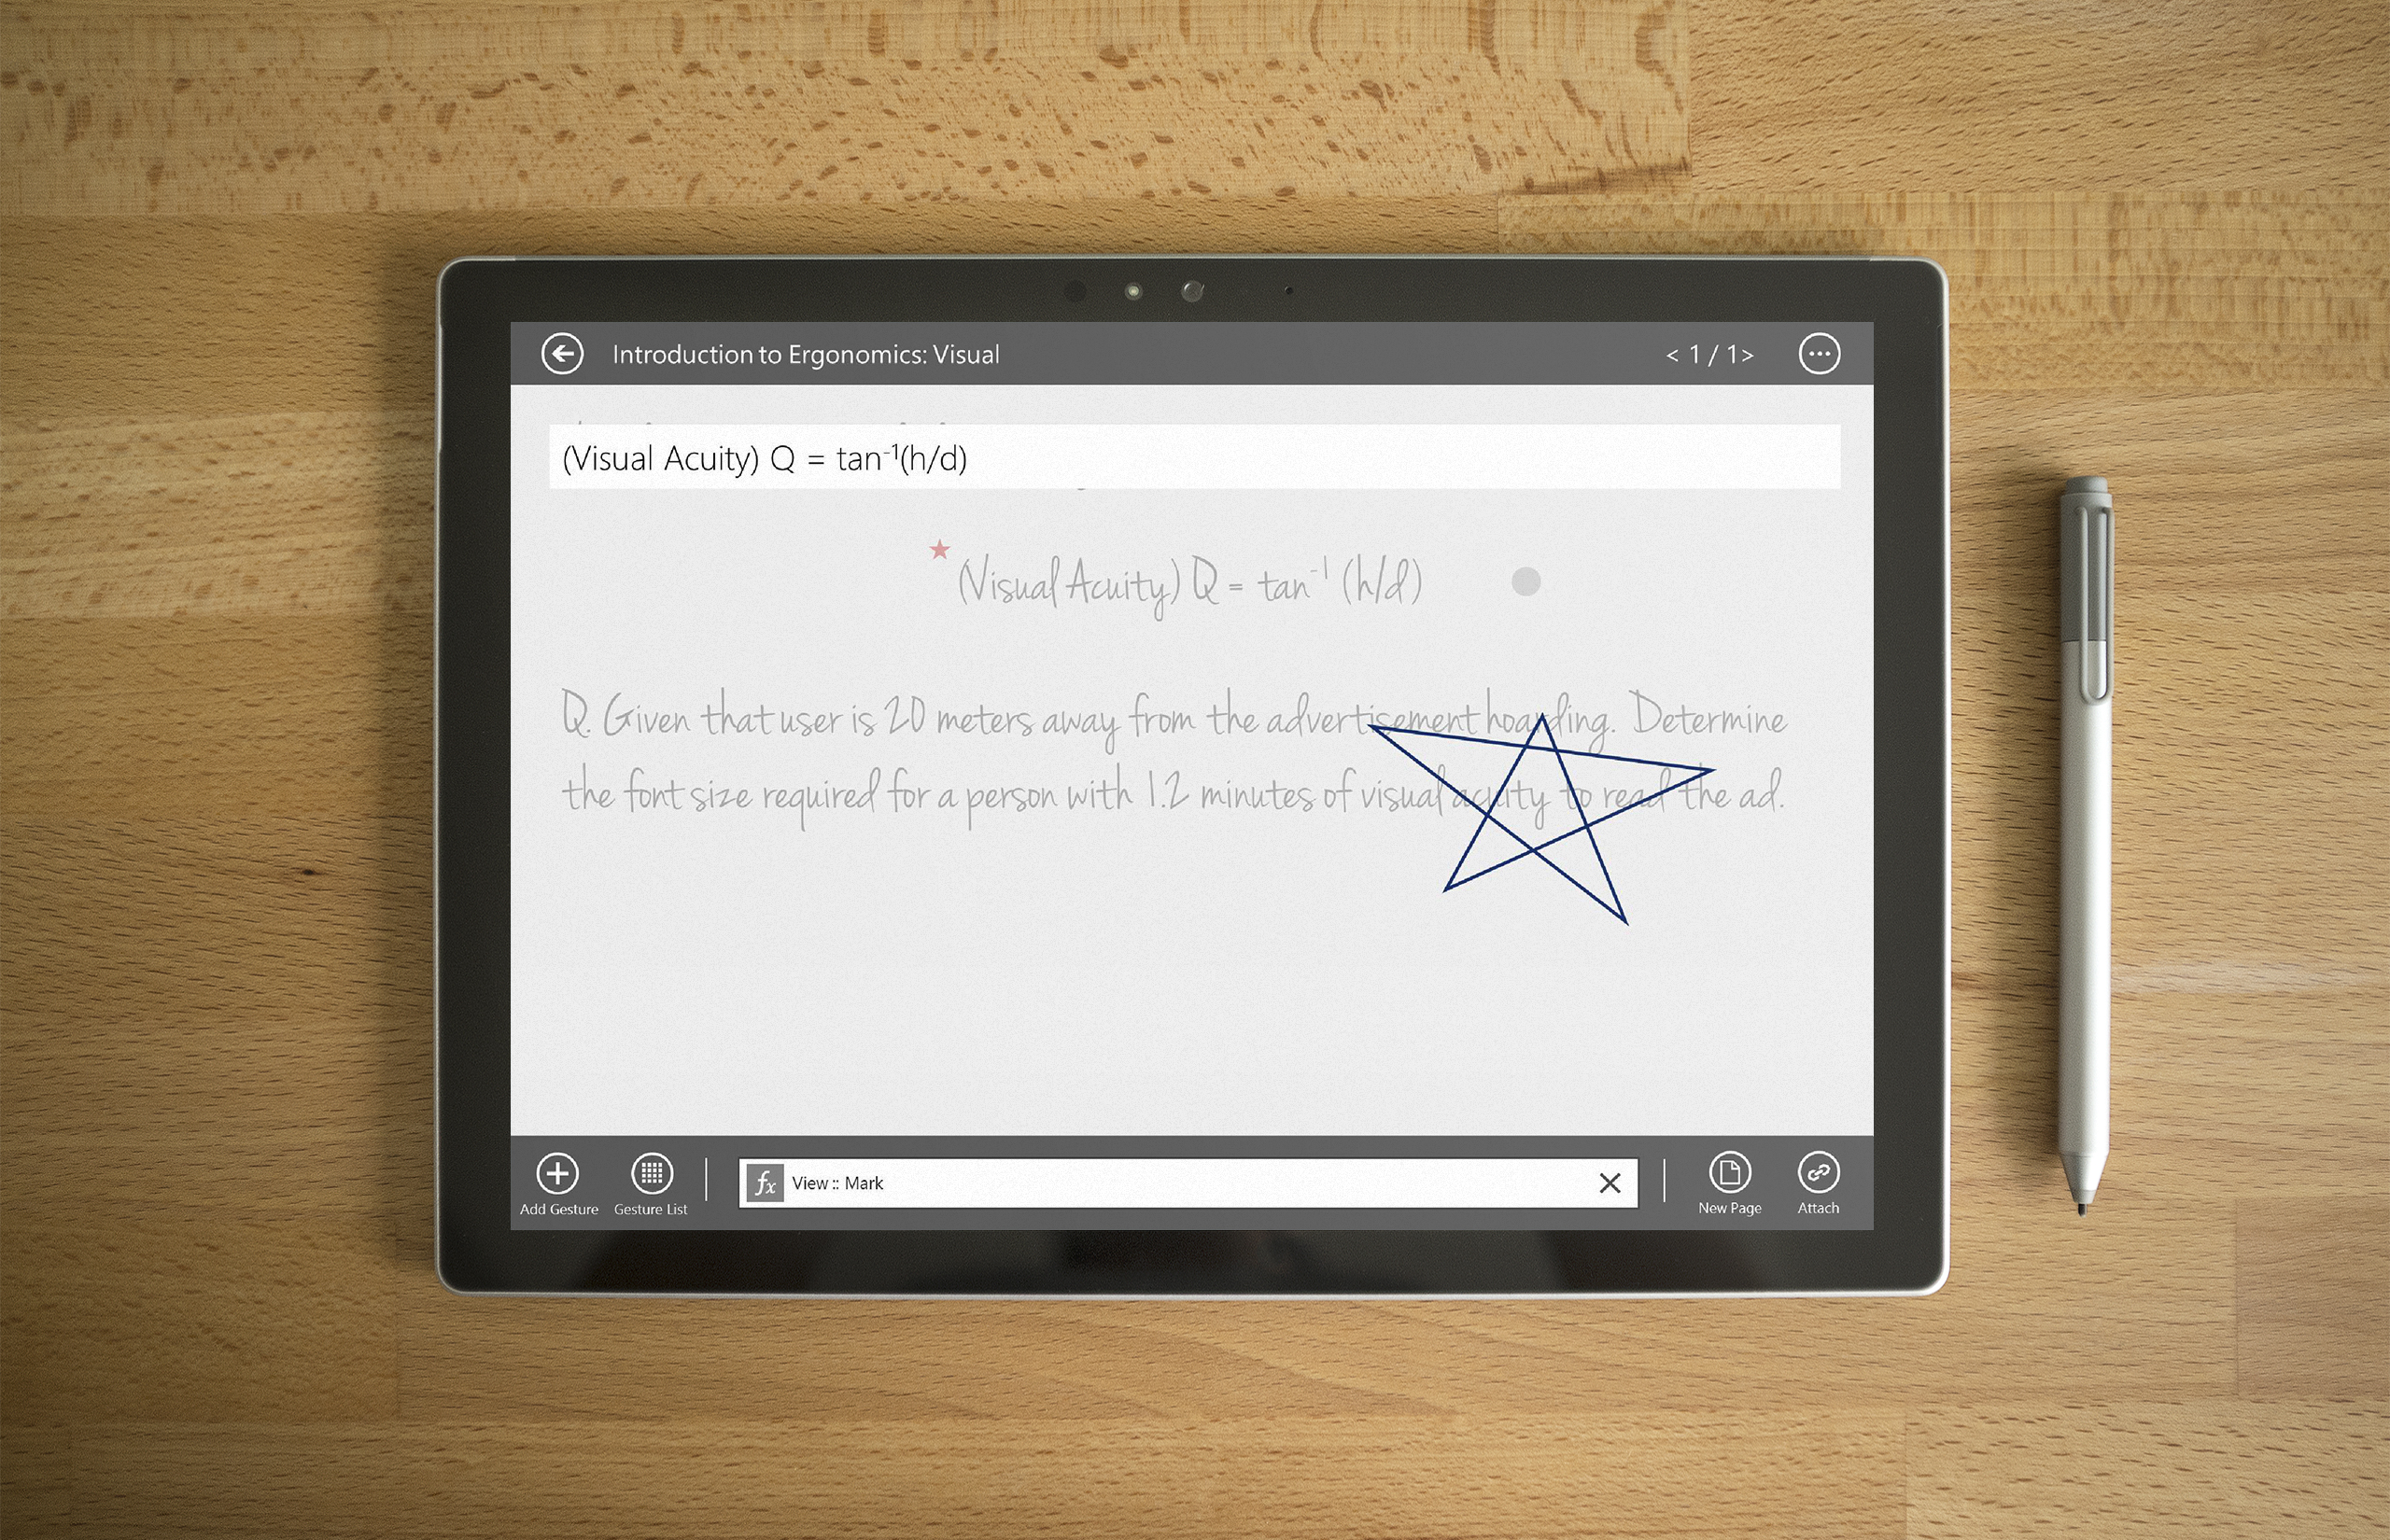 Introduction to Ergonomics: Visual < 1 / 1>
(Visual Acuity) Q = tan⁻¹(h/d)
(Visual Acuity) Q = tan⁻¹ (h/d)
Q. Given that user is 20 meters away from the advertisement hoarding. Determine
the font size required for a person with 1.2 minutes of visual acuity to read the ad.
fx View :: Mark
Add Gesture Gesture List New Page Attach